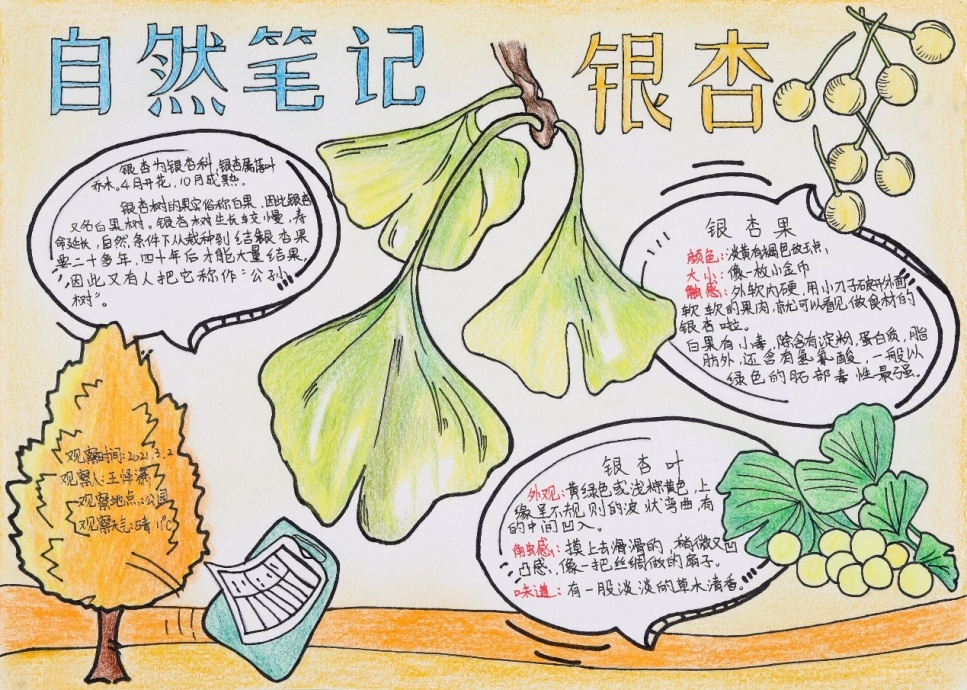 自然笔记
银杏
银杏为银杏科,银杏属落叶
乔木。4月开花,10月成熟。
银杏树的果实俗称白果,因此银杏
又名白果树。银杏树生长较慢,寿
命延长,自然条件下从栽种到结银杏果
要二十多年,四十年后才能大量结果,
因此又有人把它称作“公孙
树”。
银杏果
颜色:淡黄有褐色做斑点,
大小:像一枚小金币
触感:外软内硬,用小刀子破开外面
软软的果肉,就可以看见做食材的
银杏啦。
白果有小毒,除含有淀粉,蛋白质,脂
肪外,还含有氢氰酸,一般以
绿色的胚部毒性最强。
观察时间:2021.3.2
观察人:王
观察地点:公园
观察天气:晴 11°C
银杏叶
外观:黄绿色或浅棕黄色,上
缘呈不规则的波状弯曲,有
的中间凹入。
触感:摸上去滑滑的,稍微又凹
凸感,像一把丝绸做的扇子。
味道:有一股淡淡的草水清香。